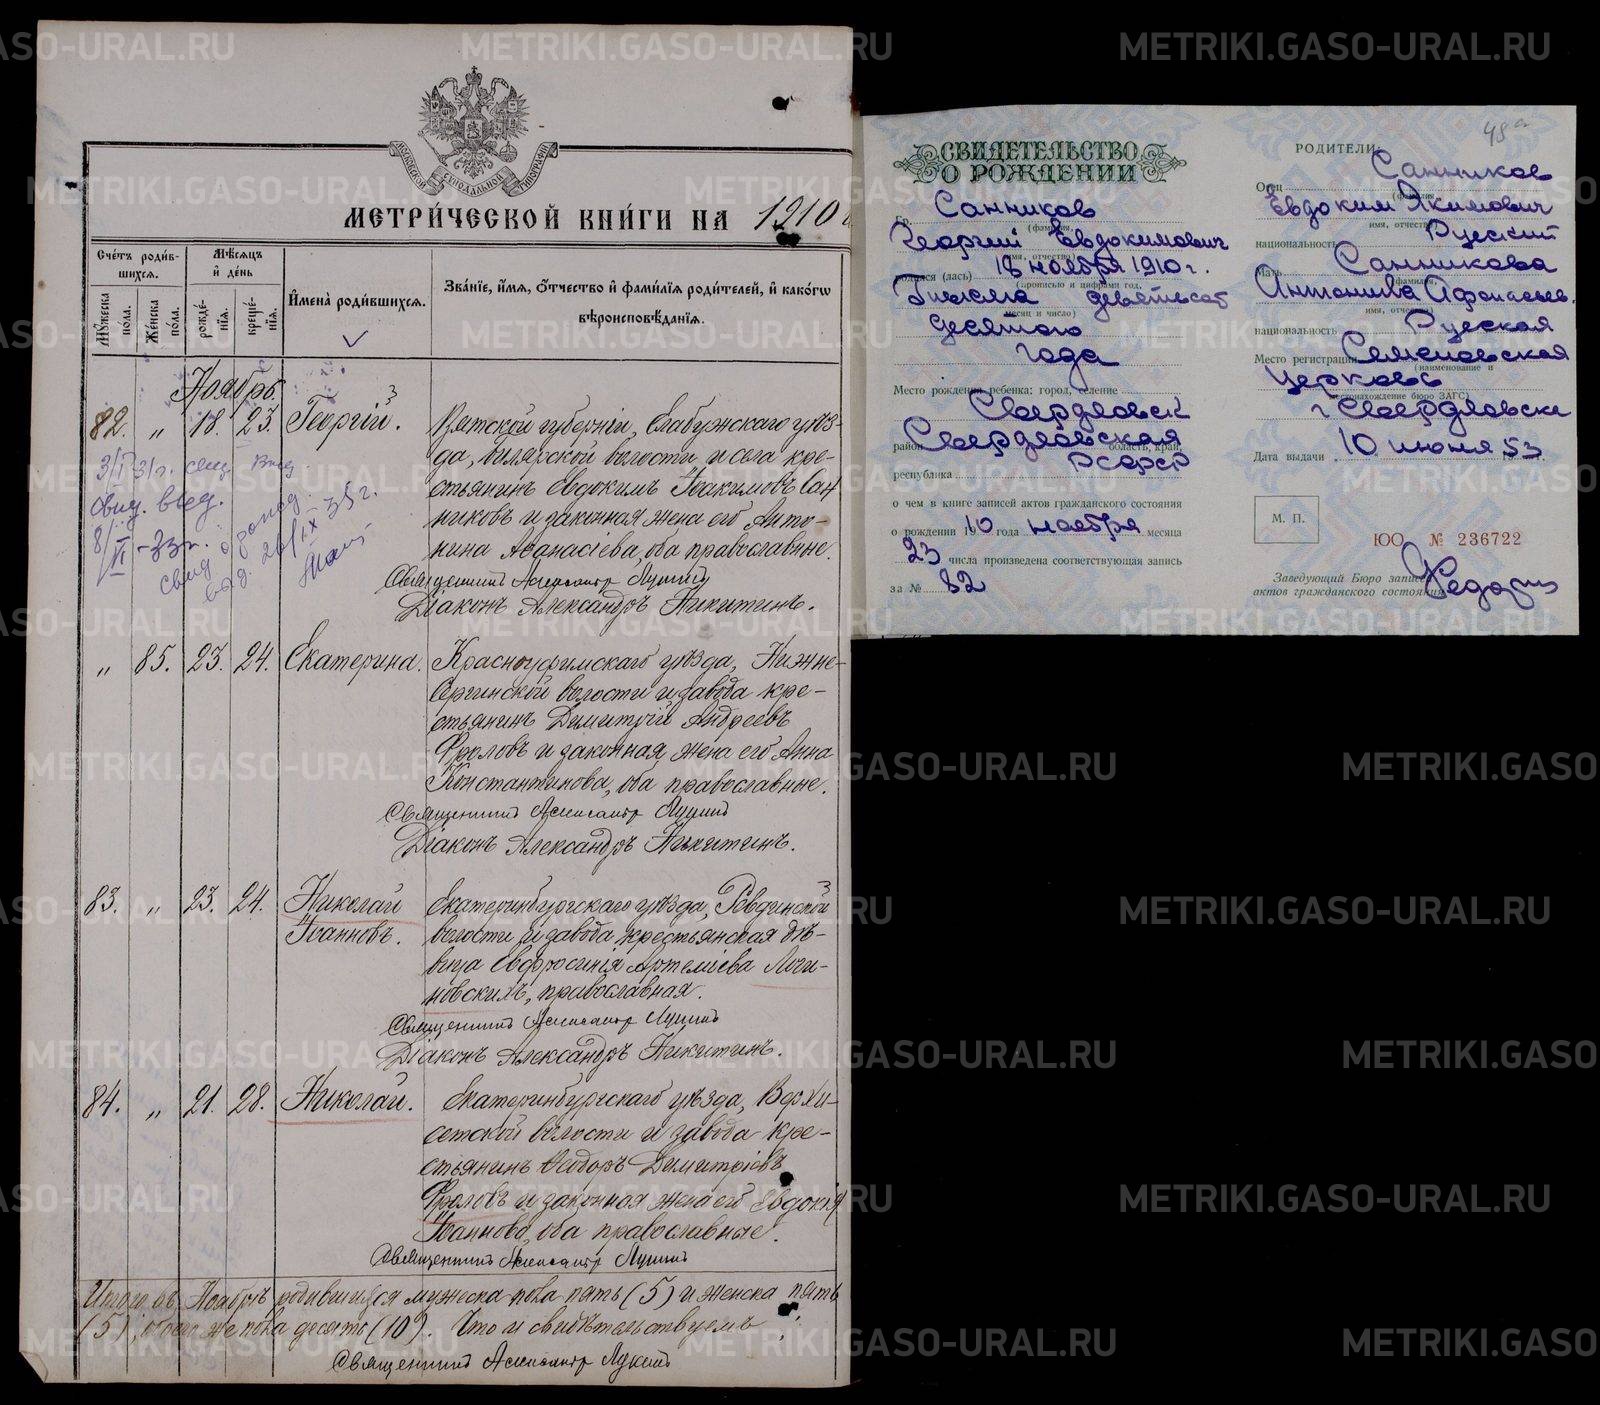 МЕТРИ́ЧЕСКОЙ КНИ́ГИ НА 1910
Счётъ роди́в-
шихся.
Мѣ́сяцъ
и́ де́нь
Мꙋ́жеска
по́ла.
Же́нска
по́ла.
рожде́-
нїя.
креще́-
нїя.
И҆мена̀ роди́вшихся.
Зва́нїе, и҆́мя, ѻ҆́тчество и҆ фами́лїя роди́телей, и҆ како́гѡ
вѣроисповѣ́данїя.
Ноябрь.
82. „ 18. 23. Георгій.
Вятской губерніи, Елабужскаго уѣз-
да, билярской волости и села кре-
стьянинъ Евдокимъ Іоакимовъ Сан
никовъ и законная жена его Анто-
нина Аѳанасіева, оба православные.
Священникъ Александръ Лукинъ
Діаконъ Александръ Никитинъ.
„ 85. 23. 24. Екатерина.
Красноуфимскаго уѣзда, Нижне-
Сергинской волости и завода кре-
стьянинъ Димитрій Андреевъ
Фроловъ и законная жена его Анна
Константинова, оба православные.
Священникъ Александръ Лукинъ
Діаконъ Александръ Никитинъ.
83. „ 23. 24. Николай
Іоанновъ.
Екатеринбургскаго уѣзда, Ревдинской
волости и завода крестьянская дѣ-
вица Евфросинія Артеміева Логи-
новскихъ, православная.
Священникъ Александръ Лукинъ
Діаконъ Александръ Никитинъ.
84. „ 21. 28. Николай.
Екатеринбургскаго уѣзда, Верхи-
сетской волости и завода кре-
стьянинъ Ѳеодоръ Димитріевъ
Фроловъ и законная жена его Евдокія
Іоаннова, оба православные.
Священникъ Александръ Лукинъ
Итого въ Ноябрѣ родившихся мужеска пола пять (5) и женска пять
(5), обоего же пола десять (10). Что и свидѣтельствуемъ:
Священникъ Александръ Лукинъ
СВИДЕТЕЛЬСТВО
О РОЖДЕНИИ
Гр. Санников
(фамилия,
Георгий Евдокимович
имя, отчество)
родился (лась) 18 ноября 1910 г.
(прописью и цифрами год,
Тысяча девятьсот
месяц и число)
десятого
года
Место рождения ребенка: город, селение
Свердловск
район Свердловская область, край,
республика РСФСР
о чем в книге записей актов гражданского состояния
о рождении 1910 года ноября месяца
23 числа произведена соответствующая запись
за № 82
48а
РОДИТЕЛИ:
Отец Санников
(фамилия,
Евдоким Якимович
имя, отчество)
национальность Русский
Мать Санникова
(фамилия,
Антонина Афонасьев.
имя, отчество)
национальность Русская
Место регистрации Семеновская
(наименование и
церковь
местонахождение бюро ЗАГС)
г Свердловске
Дата выдачи 10 июня 53
М. П.
ЮО № 236722
Заведующий Бюро записей
актов гражданского состояния
METRIKI.GASO-URAL.RU